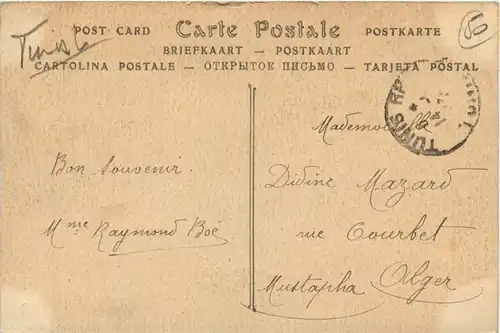 Tunis
50
POST CARD Carte Postale POSTKARTE
BRIEFKAART — POSTKAART
CARTOLINA POSTALE — ОТКРЫТОК ПИСЬМО — TARJETA POSTAL
TUNIS RP
Mademoiselle
Bon Souvenir.
Didine Mazard
Mme Raymond Boé
rue Courbet
Mustapha Alger